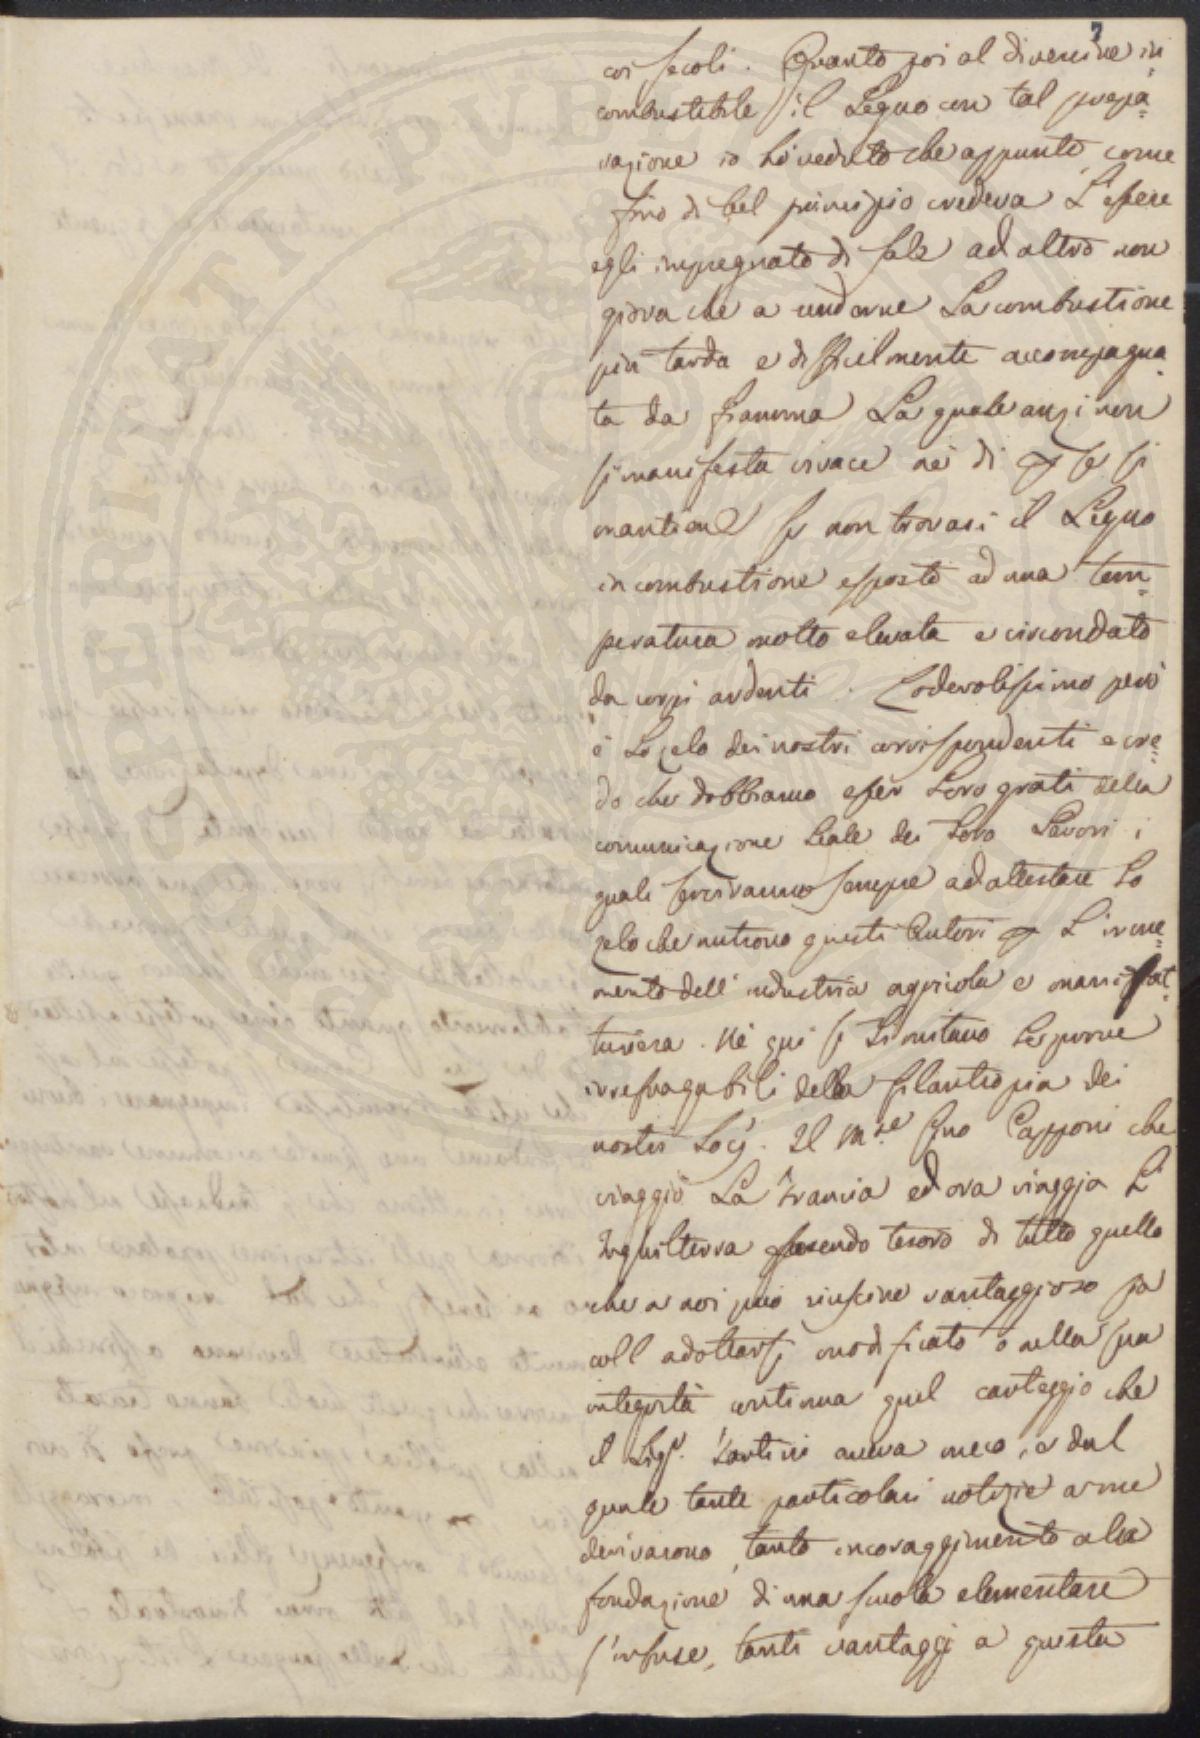 7
coi secoli. Quanto poi al divenire in=
combustibile il Legno con tal prepa=
razione io hò veduto che appunto, come
fino di bel principio credeva L'essere
egli impregnato di sale ad altro non
giova che a renderne La combustione
più tarda e difficilmente accompagna=
ta da fiamma La quale anzi non
si manifesta vivace nè di p se si
mantiene se non trovasi il Legno
in combustione esposto ad una tem=
peratura molto elevata e circondato
da corpi ardenti. Lodevolissimo però
è Lo zelo dei nostri corrispondenti e cre=
do che dobbiamo esser Loro grati della
comunicazione Leale dei Loro Lavori i
quali serviranno sempre ad attestare Lo
zelo che nutrono questi Autori p L'incre=
mento dell'industria agricola e manifat=
turiera. Nè qui si Limitano Le prove
irrefragabili della filantropia dei
nostri Socj. Il M.se Gino Capponi che
viaggiò La Francia ed ora viaggia L'
Inghilterra facendo tesoro di tutto quello
che a noi può riuscire vantaggioso sia
coll adottarsi modificato o nella sua
integrità continua quel carteggio che
il Sigr. Tartini aveva meco, e dal
quale tante particolari notizie a me
derivarono, tanto incoraggimento alla
fondazione di una scuola elementare
s'infuse, tanti vantaggi a questa